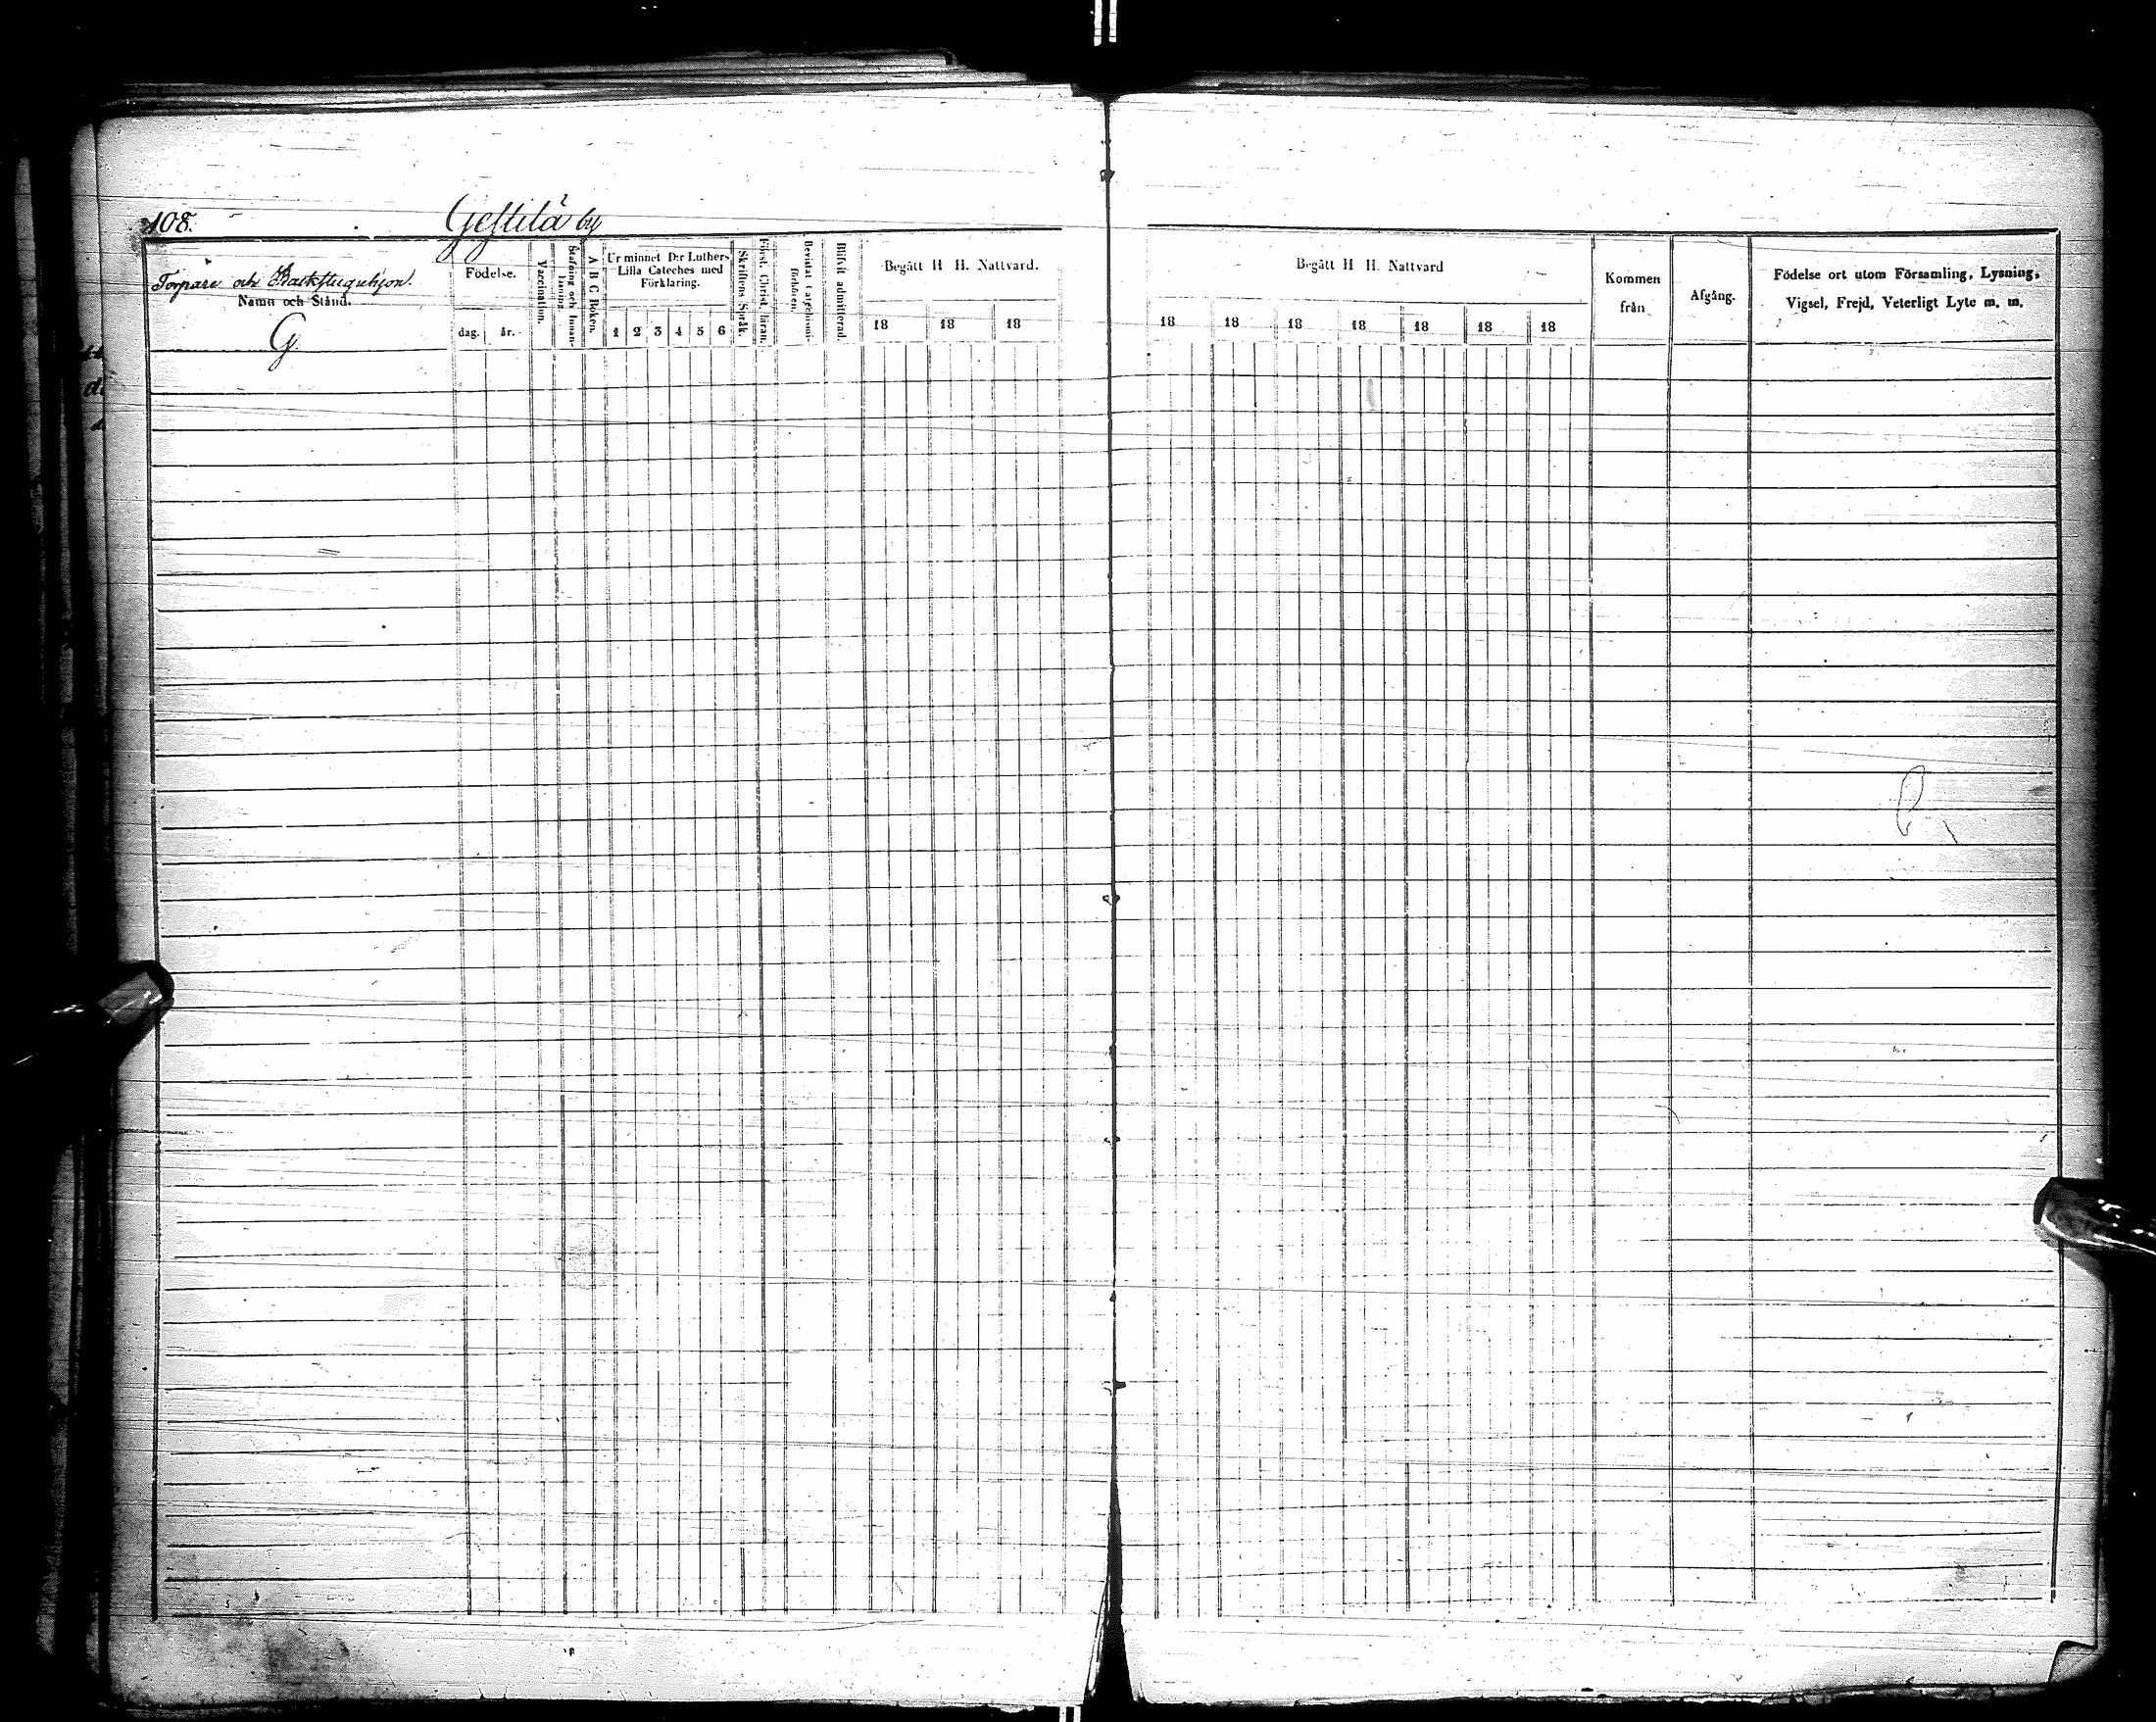 108.
Gestilä by
Torpare och Backstuguhjon.
Namn och Stånd.
G.
Födelse.
dag. år.
Vaccination.
Stafning och Innan-
läsning
A B C Boken.
Ur minnet D:r Luthers
Lilla Cateches med
Förklaring.
1 2 3 4 5 6
Skriftens Språk.
Först. Christ. läran.
Bevistat Catechismi-
förhören.
Blifvit admitterad.
Begått H H. Nattvard.
18 18 18
Begått H H. Nattvard
18 18 18 18 18 18 18
Kommen
från
Afgång.
Födelse ort utom Församling, Lysning,
Vigsel, Frejd, Veterligt Lyte m. m.